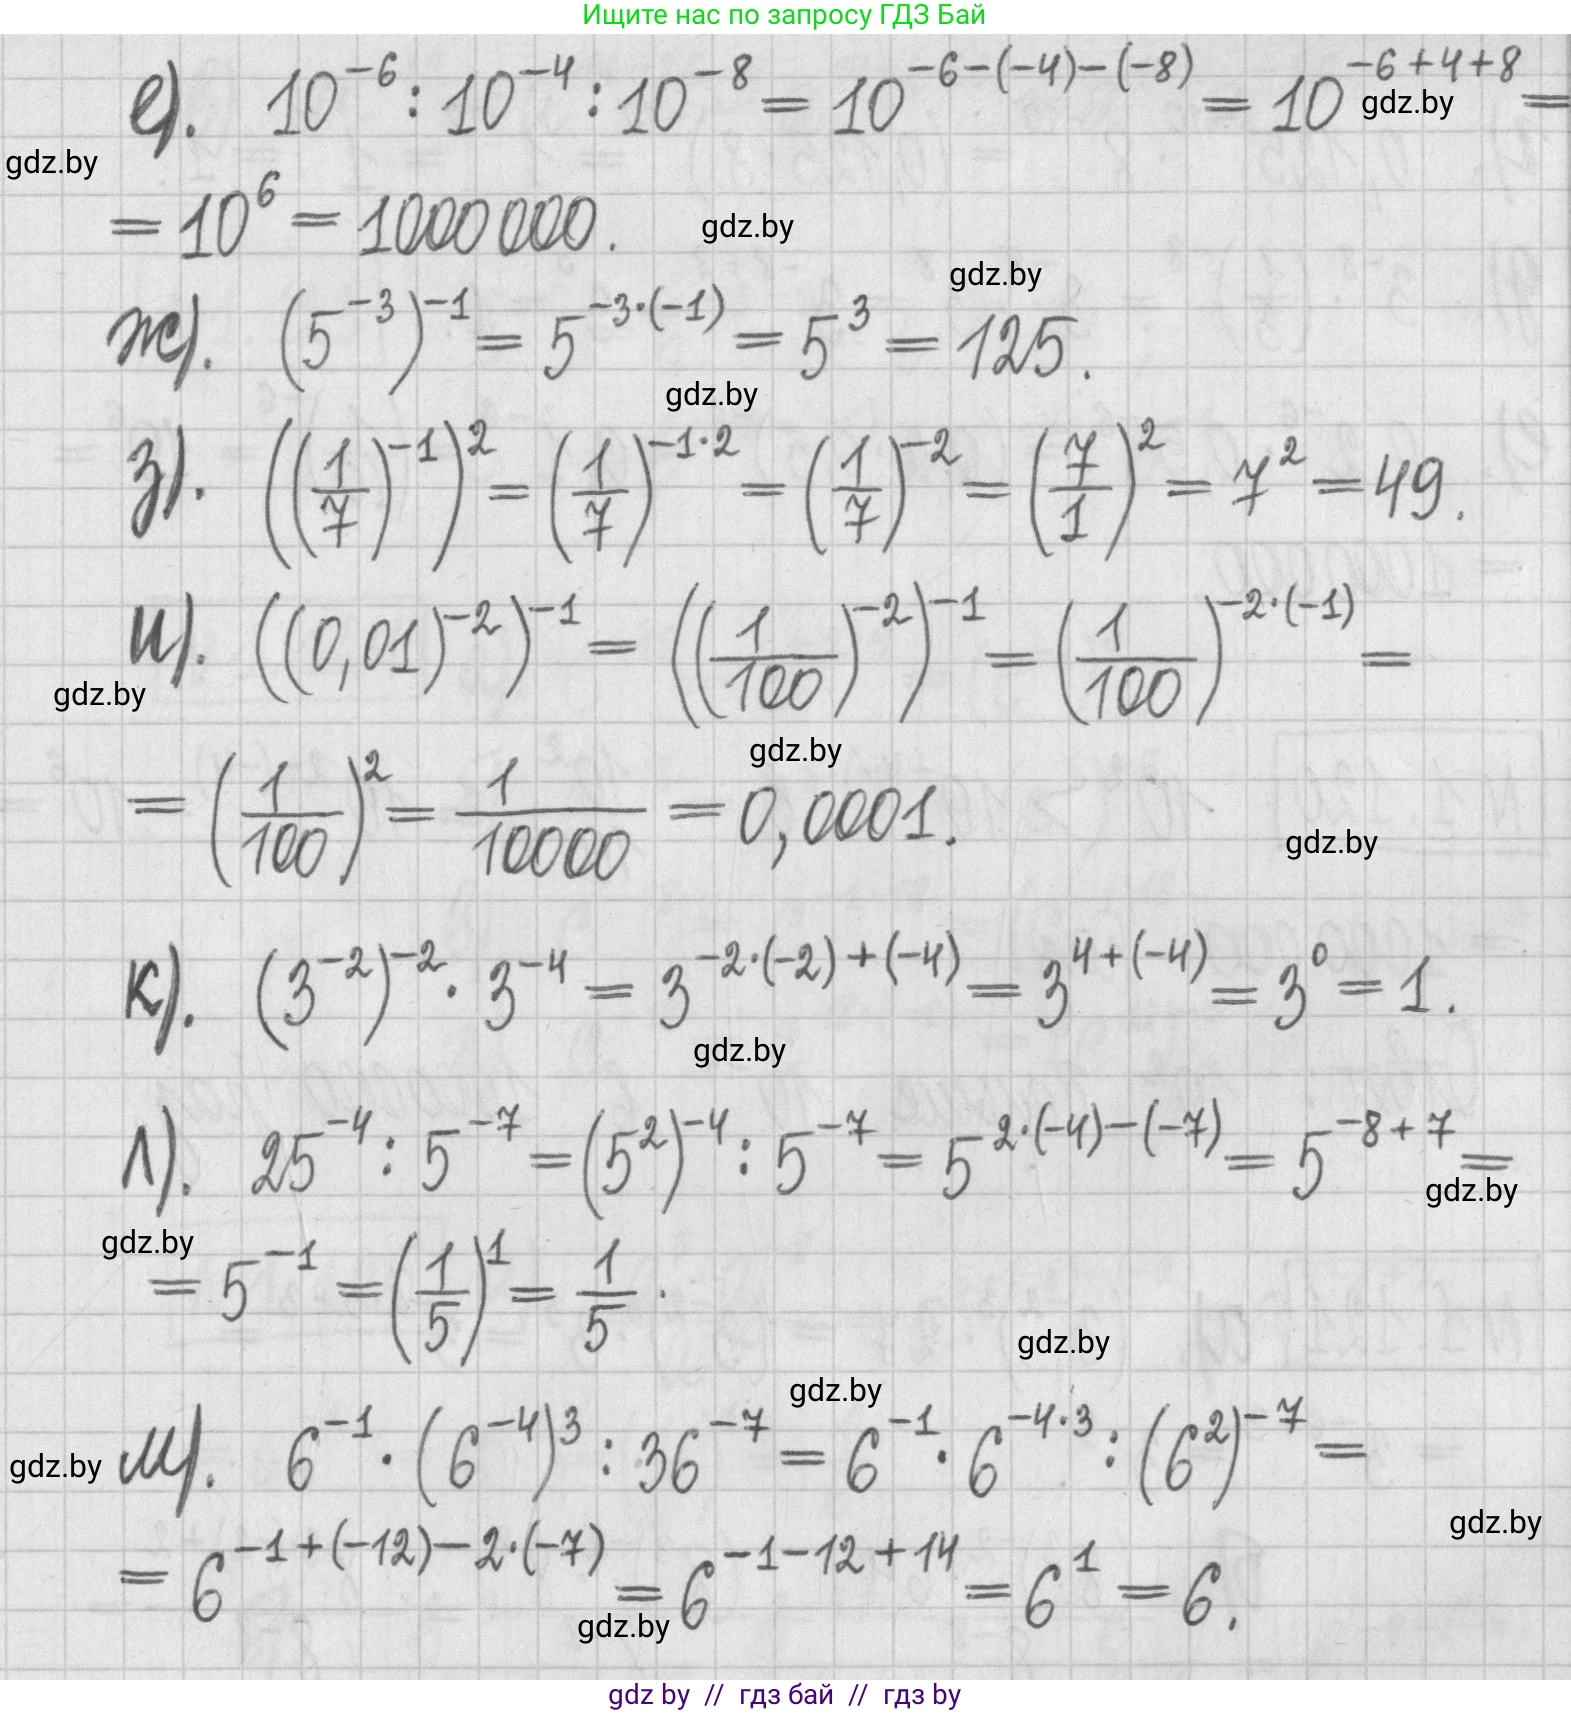 Ищите нас по запросу ГДЗ Бай
е). 10^{-6} : 10^{-4} : 10^{-8} = 10^{-6-(-4)-(-8)} = 10^{-6+4+8} =
gdz.by
gdz.by
= 10^6 = 1000 000.
gdz.by
gdz.by
ж). (5^{-3})^{-1} = 5^{-3·(-1)} = 5^3 = 125.
gdz.by
з). ((1/7)^{-1})^2 = (1/7)^{-1·2} = (1/7)^{-2} = (7/1)^2 = 7^2 = 49.
и). ((0,01)^{-2})^{-1} = ((1/100)^{-2})^{-1} = (1/100)^{-2·(-1)} =
gdz.by
gdz.by
= (1/100)^2 = 1/10000 = 0,0001.
gdz.by
к). (3^{-2})^{-2} · 3^{-4} = 3^{-2·(-2)+(-4)} = 3^{4+(-4)} = 3^0 = 1.
gdz.by
л). 25^{-4} : 5^{-7} = (5^2)^{-4} : 5^{-7} = 5^{2·(-4)-(-7)} = 5^{-8+7} =
gdz.by
gdz.by
= 5^{-1} = (1/5)^1 = 1/5.
gdz.by
gdz.by
м). 6^{-1} · (6^{-4})^3 : 36^{-7} = 6^{-1} · 6^{-4·3} : (6^2)^{-7} =
gdz.by
gdz.by
= 6^{-1+(-12)-2·(-7)} = 6^{-1-12+14} = 6^1 = 6.
gdz.by
gdz by // гдз бай // гдз by